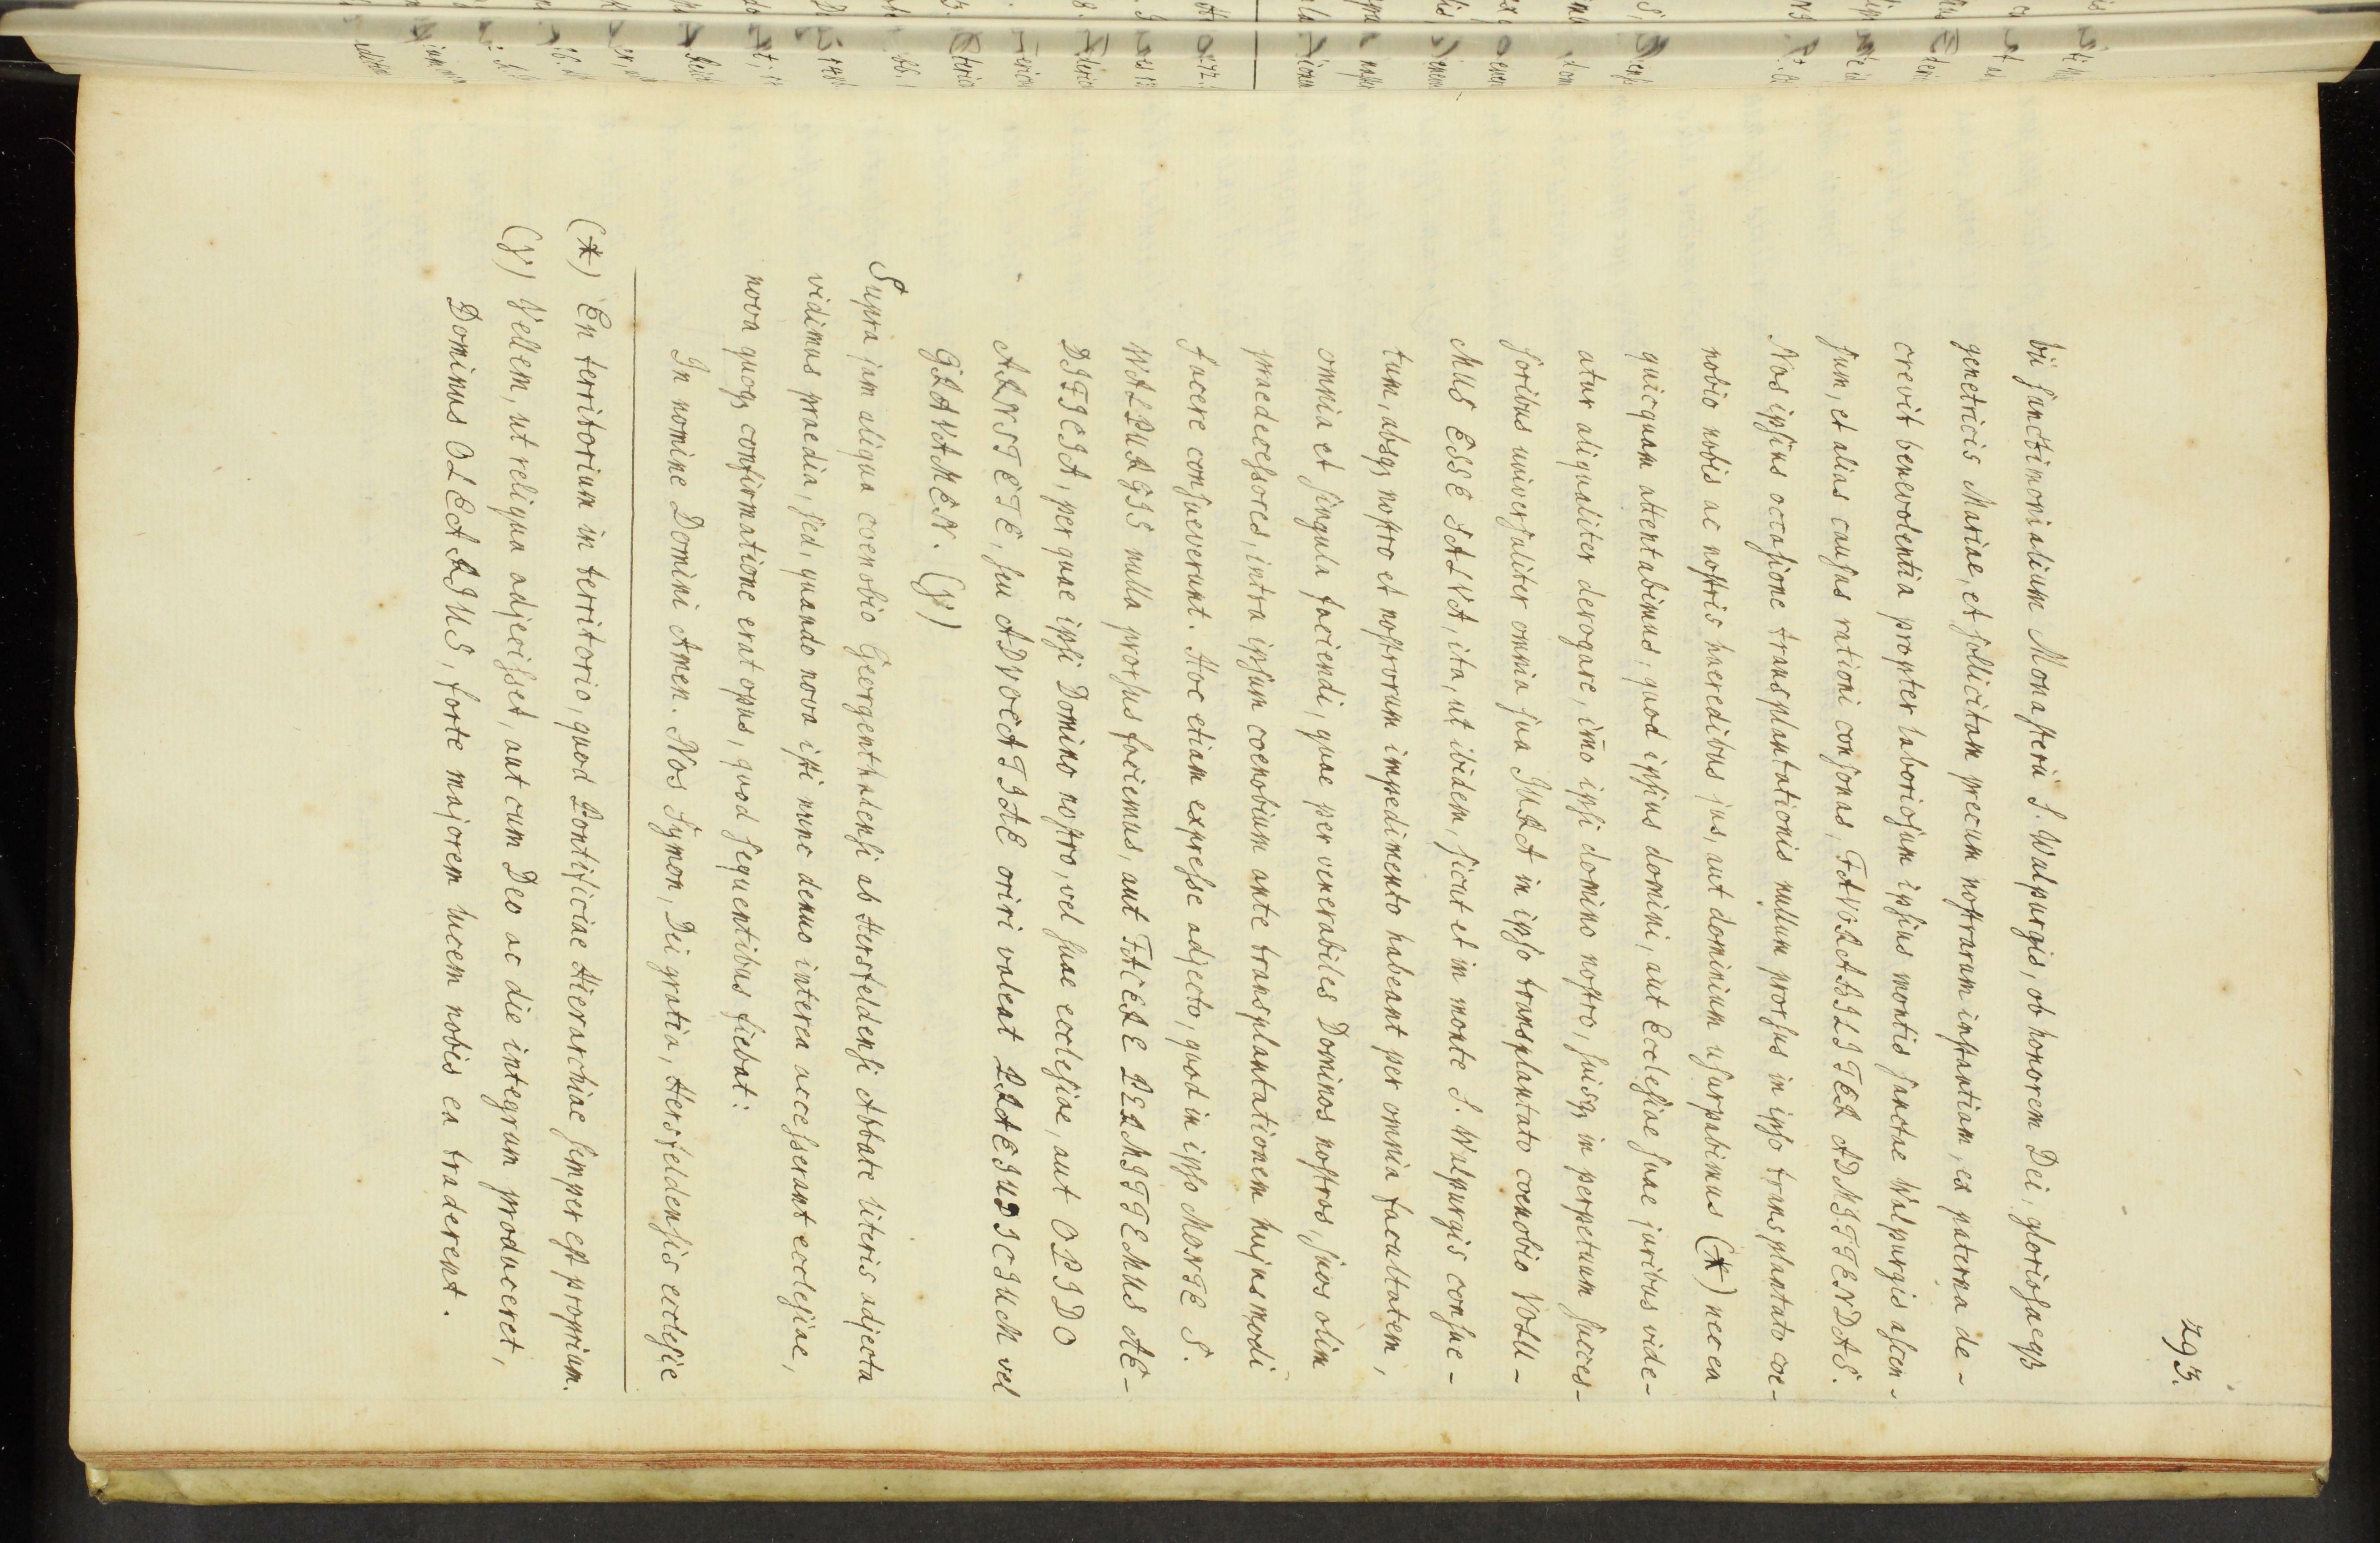 293.
bii sanctimonialium Monasterii S. Walpurgis, ob honorem Dei, gloriosaeqȝ
genetricis Mariae, et sollicitam precum nostrarum instantiam, ex paterna de-
crevit benevolentia propter laboriosum ipsius montis sanctae Walpurgis ascen-
sum, et alias causas rationi consonas, FAVORABILITER ADMITTENDAS.
Nos ipsius occasione transplantationis nullum prorsus in ipso transplantato coe-
nobio nobis ac nostris haeredibus jus, aut dominium usurpabimus (*) nec ea
quicquam attentabimus, quod ipsius domini, aut Ecclesiae suae juribus vide-
atur aliqualiter derogare, im̄o ipsi domino nostro, suisqȝ in perpetuum succes-
soribus universaliter omnia sua JURA in ipso transplantato coenobio VOLU-
MUS ESSE SALVA, ita, ut ibidem, sicut et in monte S. Walpurgis consue-
tum, absqȝ nostro et nostrorum impedimento habeant per omnia facultatem,
omnia et singula faciendi, quae per venerabiles Dominos nostros, suos olim
praedecessores, intra ipsum coenobium ante transplantationem hujusmodi
facere consueverunt. Hoc etiam expresse adjecto, quod in ipso MONTE S.
WALPURGIS nulla prorsus faciemus, aut FACERE PERMITTEMUS AE-
DIFICIA, per quae ipsi Domino nostro, vel suae ecclesiae, aut OPIDO
ARNSTETE, seu ADVOCATIAE oriri valeat PRAEIUDICIUM vel
GRAVAMEN. (y)
Supra jam aliqua coenobio Georgenthalensi ab Hersfeldensi Abbate literis adjecta
vidimus praedia, sed, quando nova isti nunc denuo interea accesserant ecclesiae,
nova quoqȝ confirmatione erat opus, quod sequentibus fiebat:
In nomine Domini Amen. Nos Symon, Dei gratia, Hersfeldensis ecclesie
(*) En territorium in territorio, quod Pontificiae Hierarchiae semper est proprium.
(y) Vellem, ut reliqua adjecisset, aut cum Deo ac die integrum produceret,
Dominus OLEARIUS, forte majorem lucem nobis ea traderent.